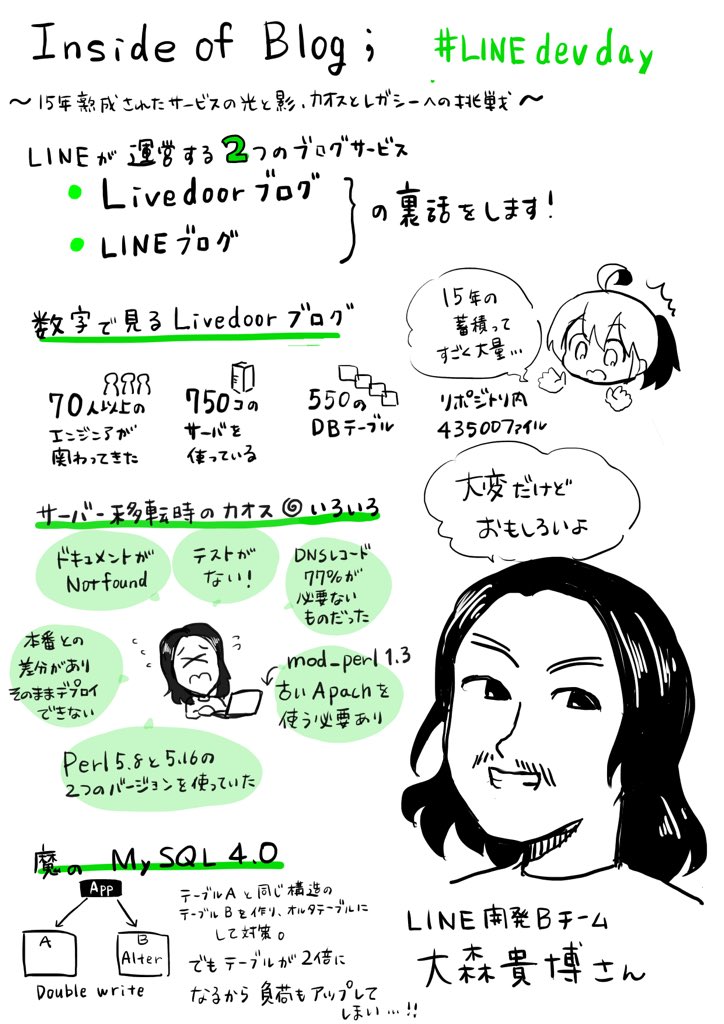 Inside of Blog; #LINEdevday
〜15年熟成されたサービスの光と影、カオスとレガシーへの挑戦〜
LINEが運営する2つのブログサービス
• Livedoorブログ
• LINEブログ
の裏話をします!
数字で見るLivedoorブログ
15年の
蓄積って
すごく大量…
70人以上の
エンジニアが
関わってきた
750コの
サーバを
使っている
550の
DBテーブル
リポジトリ内
43500ファイル
大変だけど
おもしろいよ
サーバー移転時のカオス@いろいろ
ドキュメントが
Notfound
テストが
ない!
DNSレコード
77%が
必要ない
ものだった
本番との
差分があり
そのままデプロイ
できない
mod_perl 1.3
古いApachを
使う必要あり
Perl5.8と5.16の
2つのバージョンを使っていた
魔の MySQL 4.0
App
A
B
Alter
Double write
テーブルAと同じ構造の
テーブルBを作り、オルタテーブルに
して対策。
でもテーブルが2倍に
なるから負荷もアップして
しまい…!!
LINE開発Bチーム
大森貴博さん